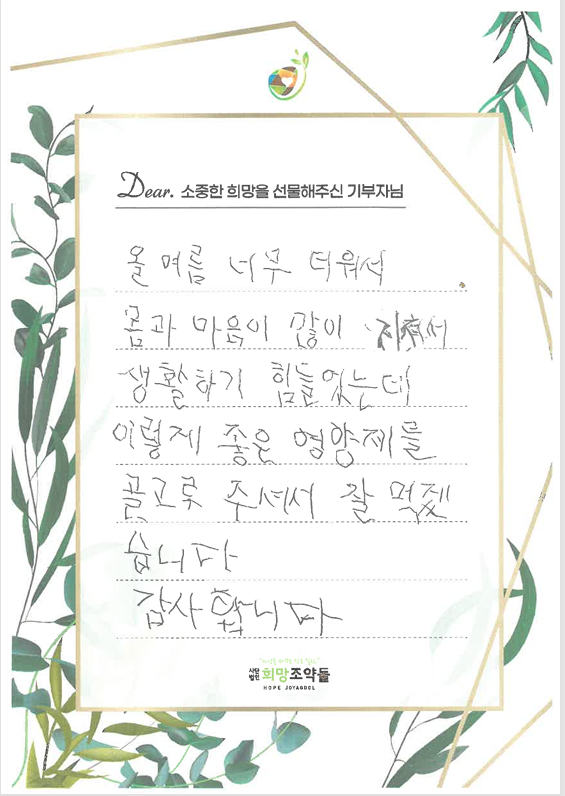 Dear. 소중한 희망을 선물해주신 기부자님
올 여름 너무 더워서
몸과 마음이 많이
생활하기 힘들었는데
이렇게 좋은 영양제를
골고루 주셔서 잘 먹겠
습니다
감사합니다
사단법인 희망조약돌
HOPE JOYAGDOL